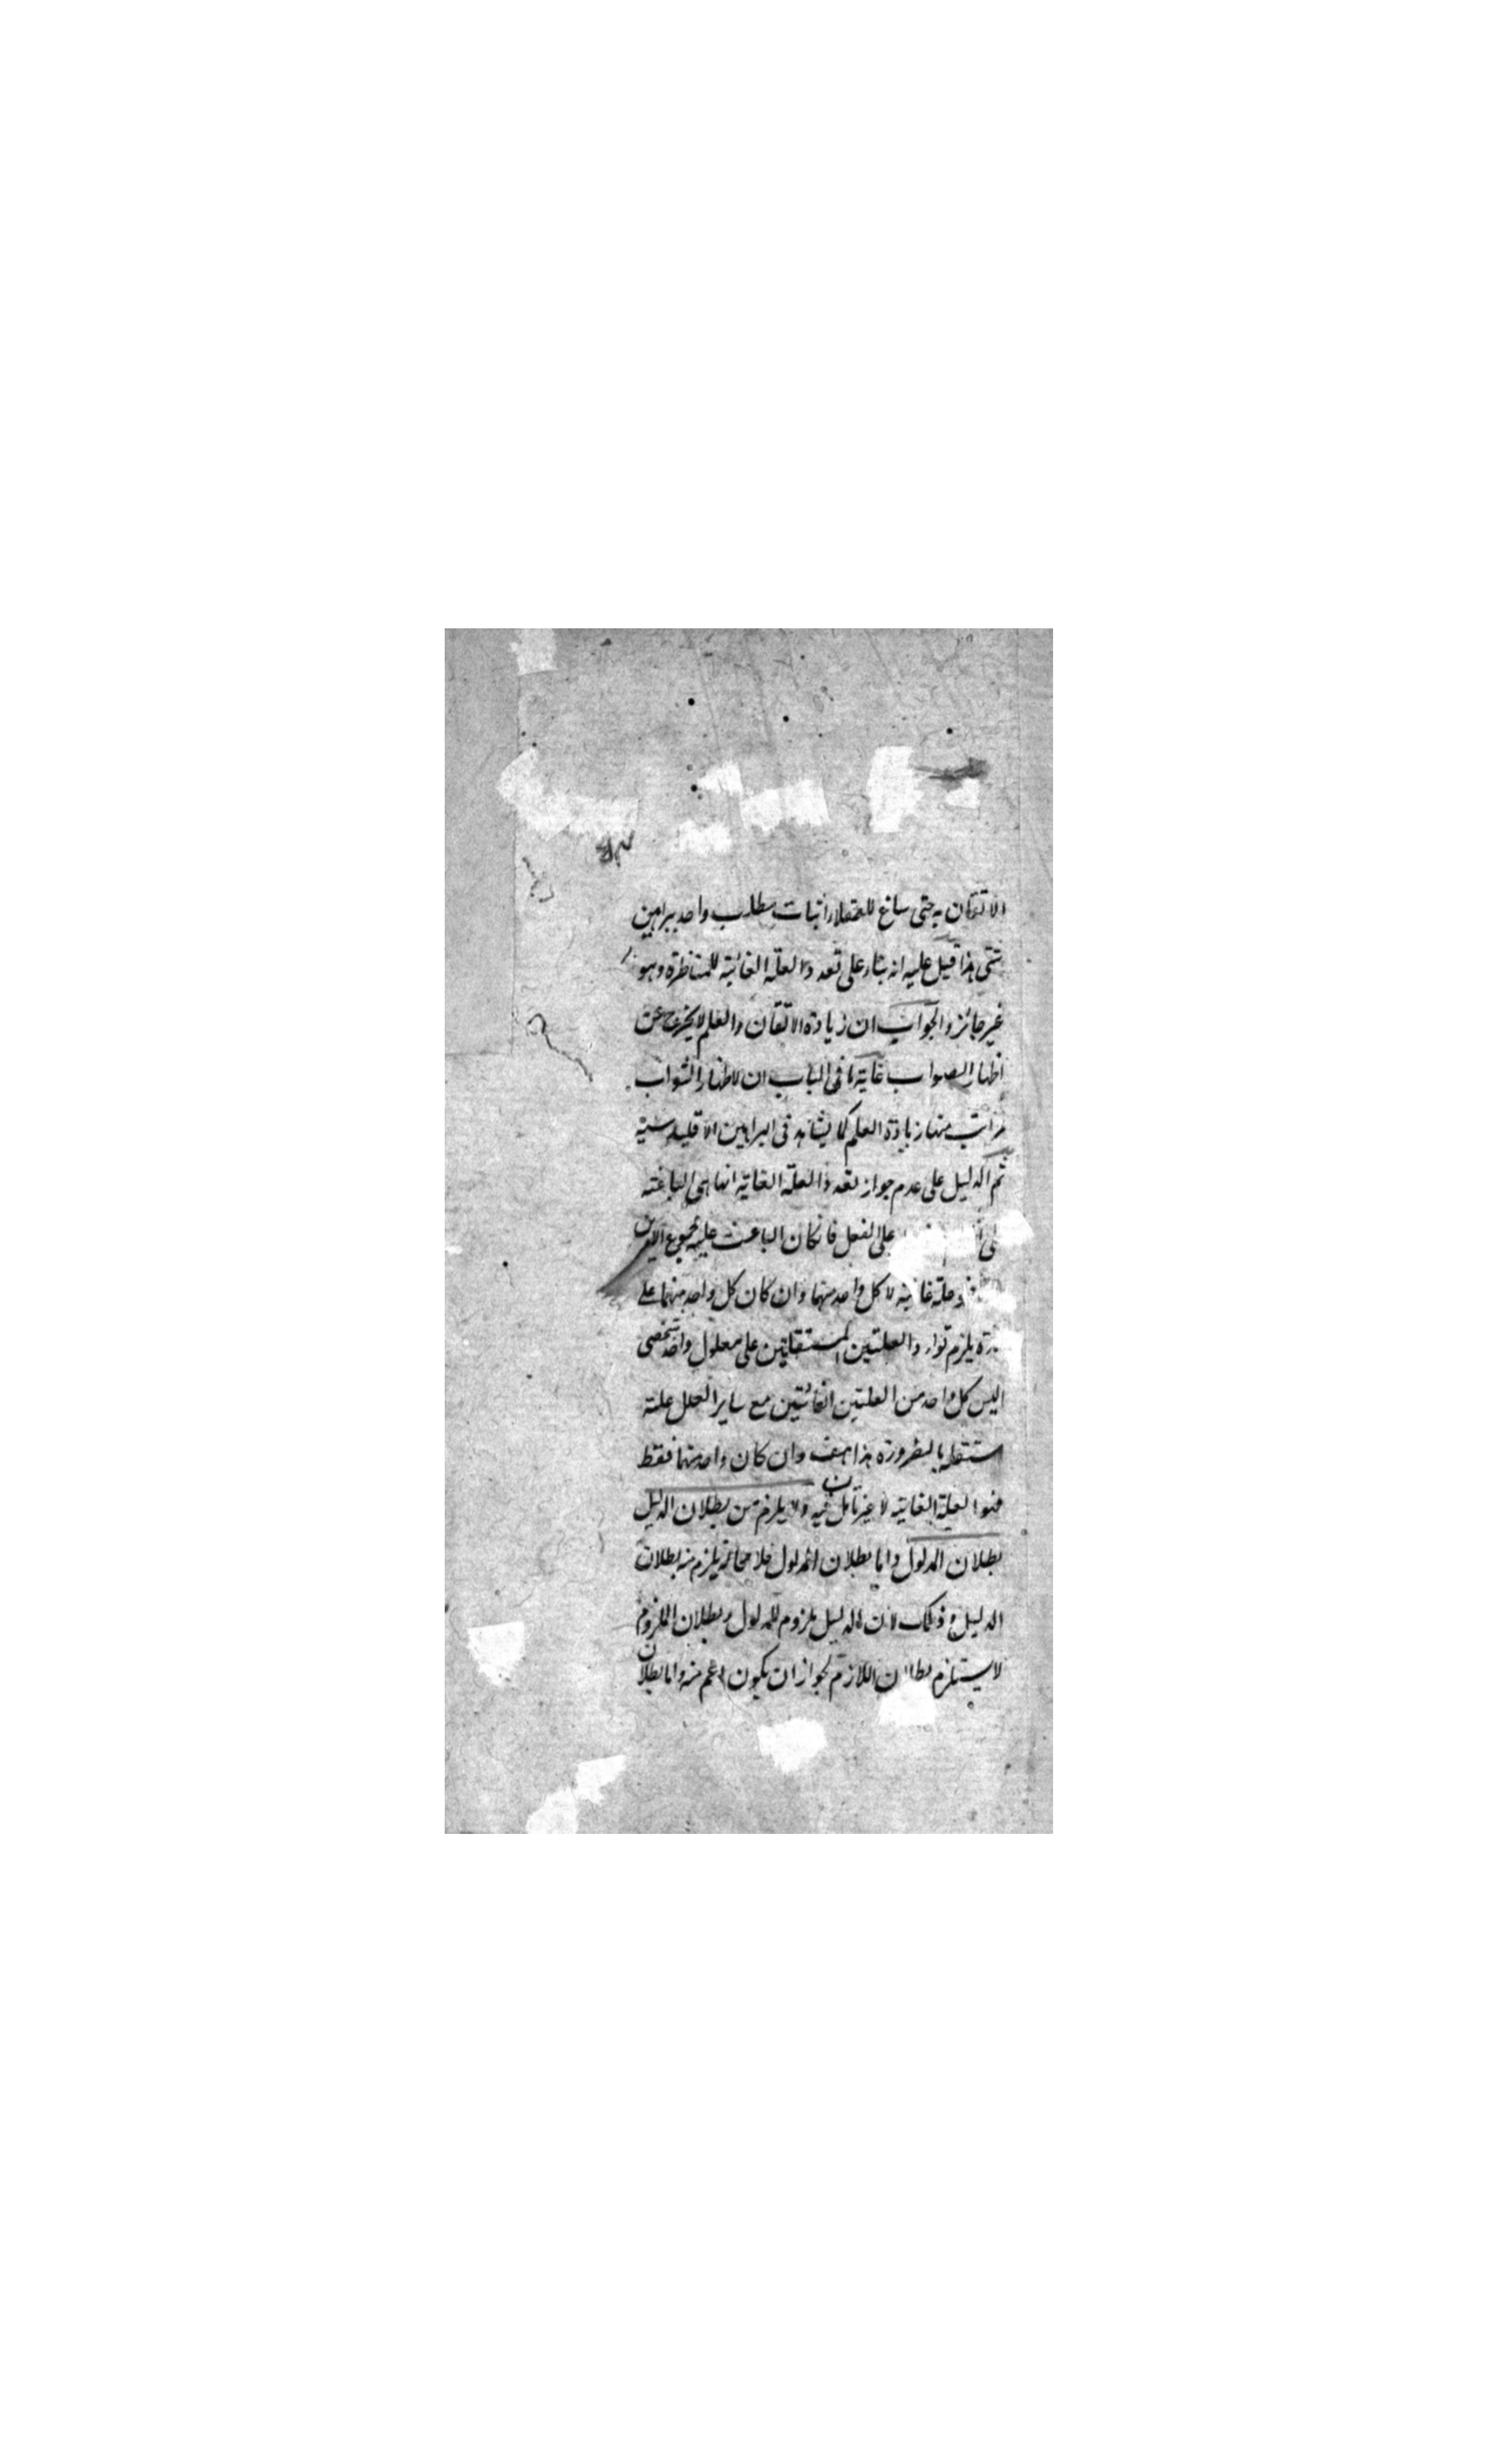 الاتقان به حتى ساغ للعقلاء اثبات مطلب واحد ببراهين
شتى هذا قيل عليه انه بناء على تعدد العلة الغائية للمناظرة وهو
غير جائز والجواب ان زيادة الاتقان والعلم لا يخرج عن
اظهار الصواب غاية ما فى الباب ان لاظهار الصواب
مراتب منها زيادة العلم كما يشاهد فى البراهين الاقليدسية
ثم الدليل على عدم جواز تعدد العلة الغائية انها هى الباعثة
على الفعل فان كان الباعث عليه مجموع الامرين
علة غائية لا كل واحد منهما وان كان كل واحد منهما على
يلزم توارد العلتين المستقلتين على معلول واحد شخصى
اليس كل واحد من العلتين الغائتين مع ساير العلل علته
مستقلة بالضرورة هذا هف وان كان واحد منهما فقط
فهو العلة الغائية لا غير تأمل فيه ولا يلزم من بطلان الدليل
بطلان المدلول واما بطلان المدلول فلا محالة يلزم منه بطلان
الدليل وذلك لان الدليل ملزوم للمدلول وبطلان الملزوم
لا يستلزم بطلان اللازم لجواز ان يكون اعم منه واما بطلان